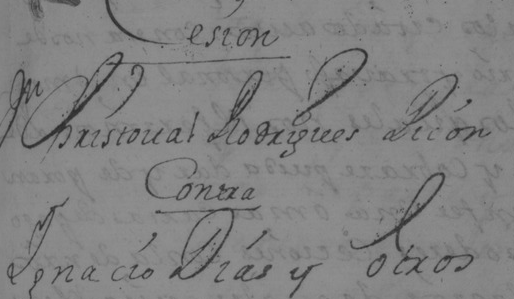 Cesion
Jn Christoual Rodrigues Picón
Contra
Ignacio Días y Otros